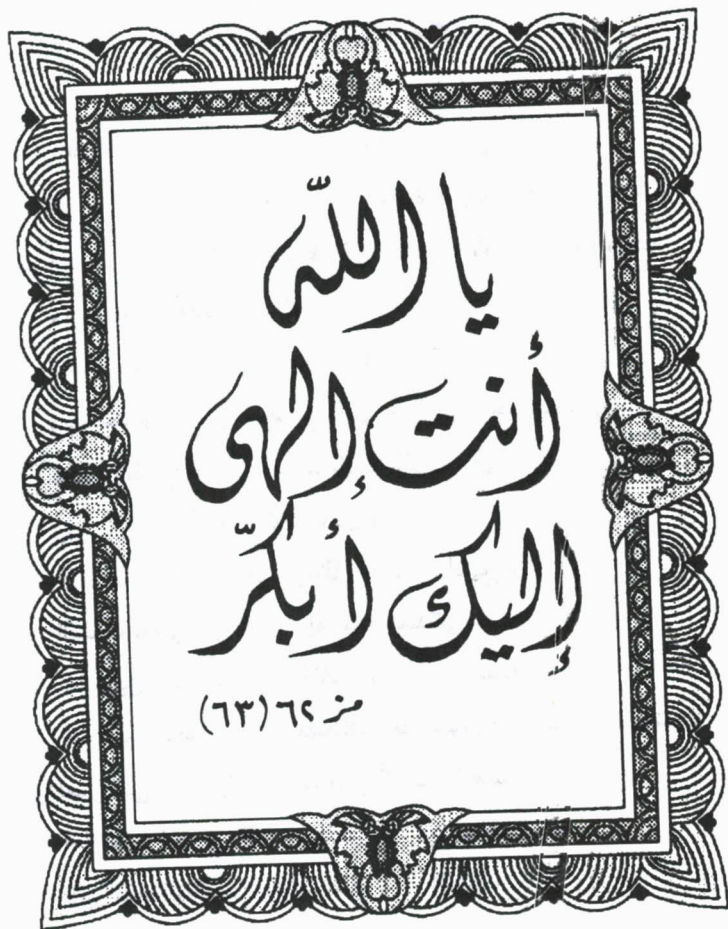 يا اللّه
أنت إلهى
إليك أبكّر
مز ٦٢ (٦٣)